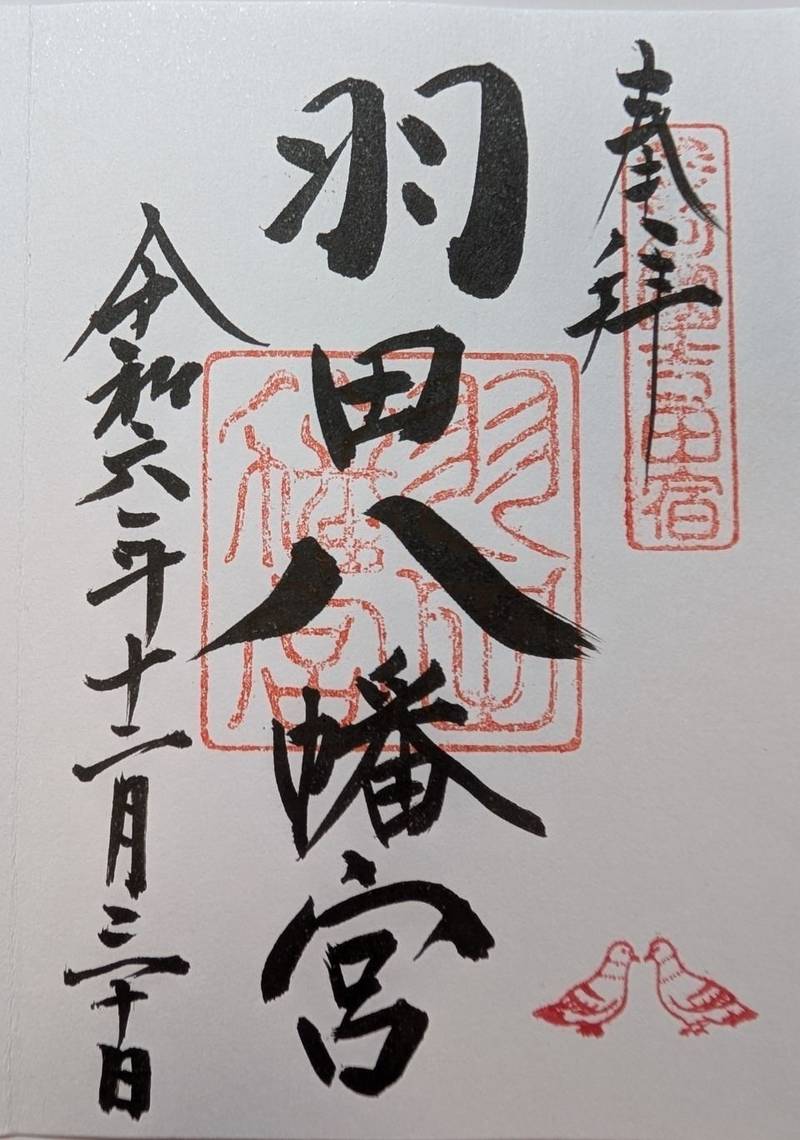 奉拝
吉田宿
羽田八幡宮
羽田八幡宮
令和六年十二月三十日